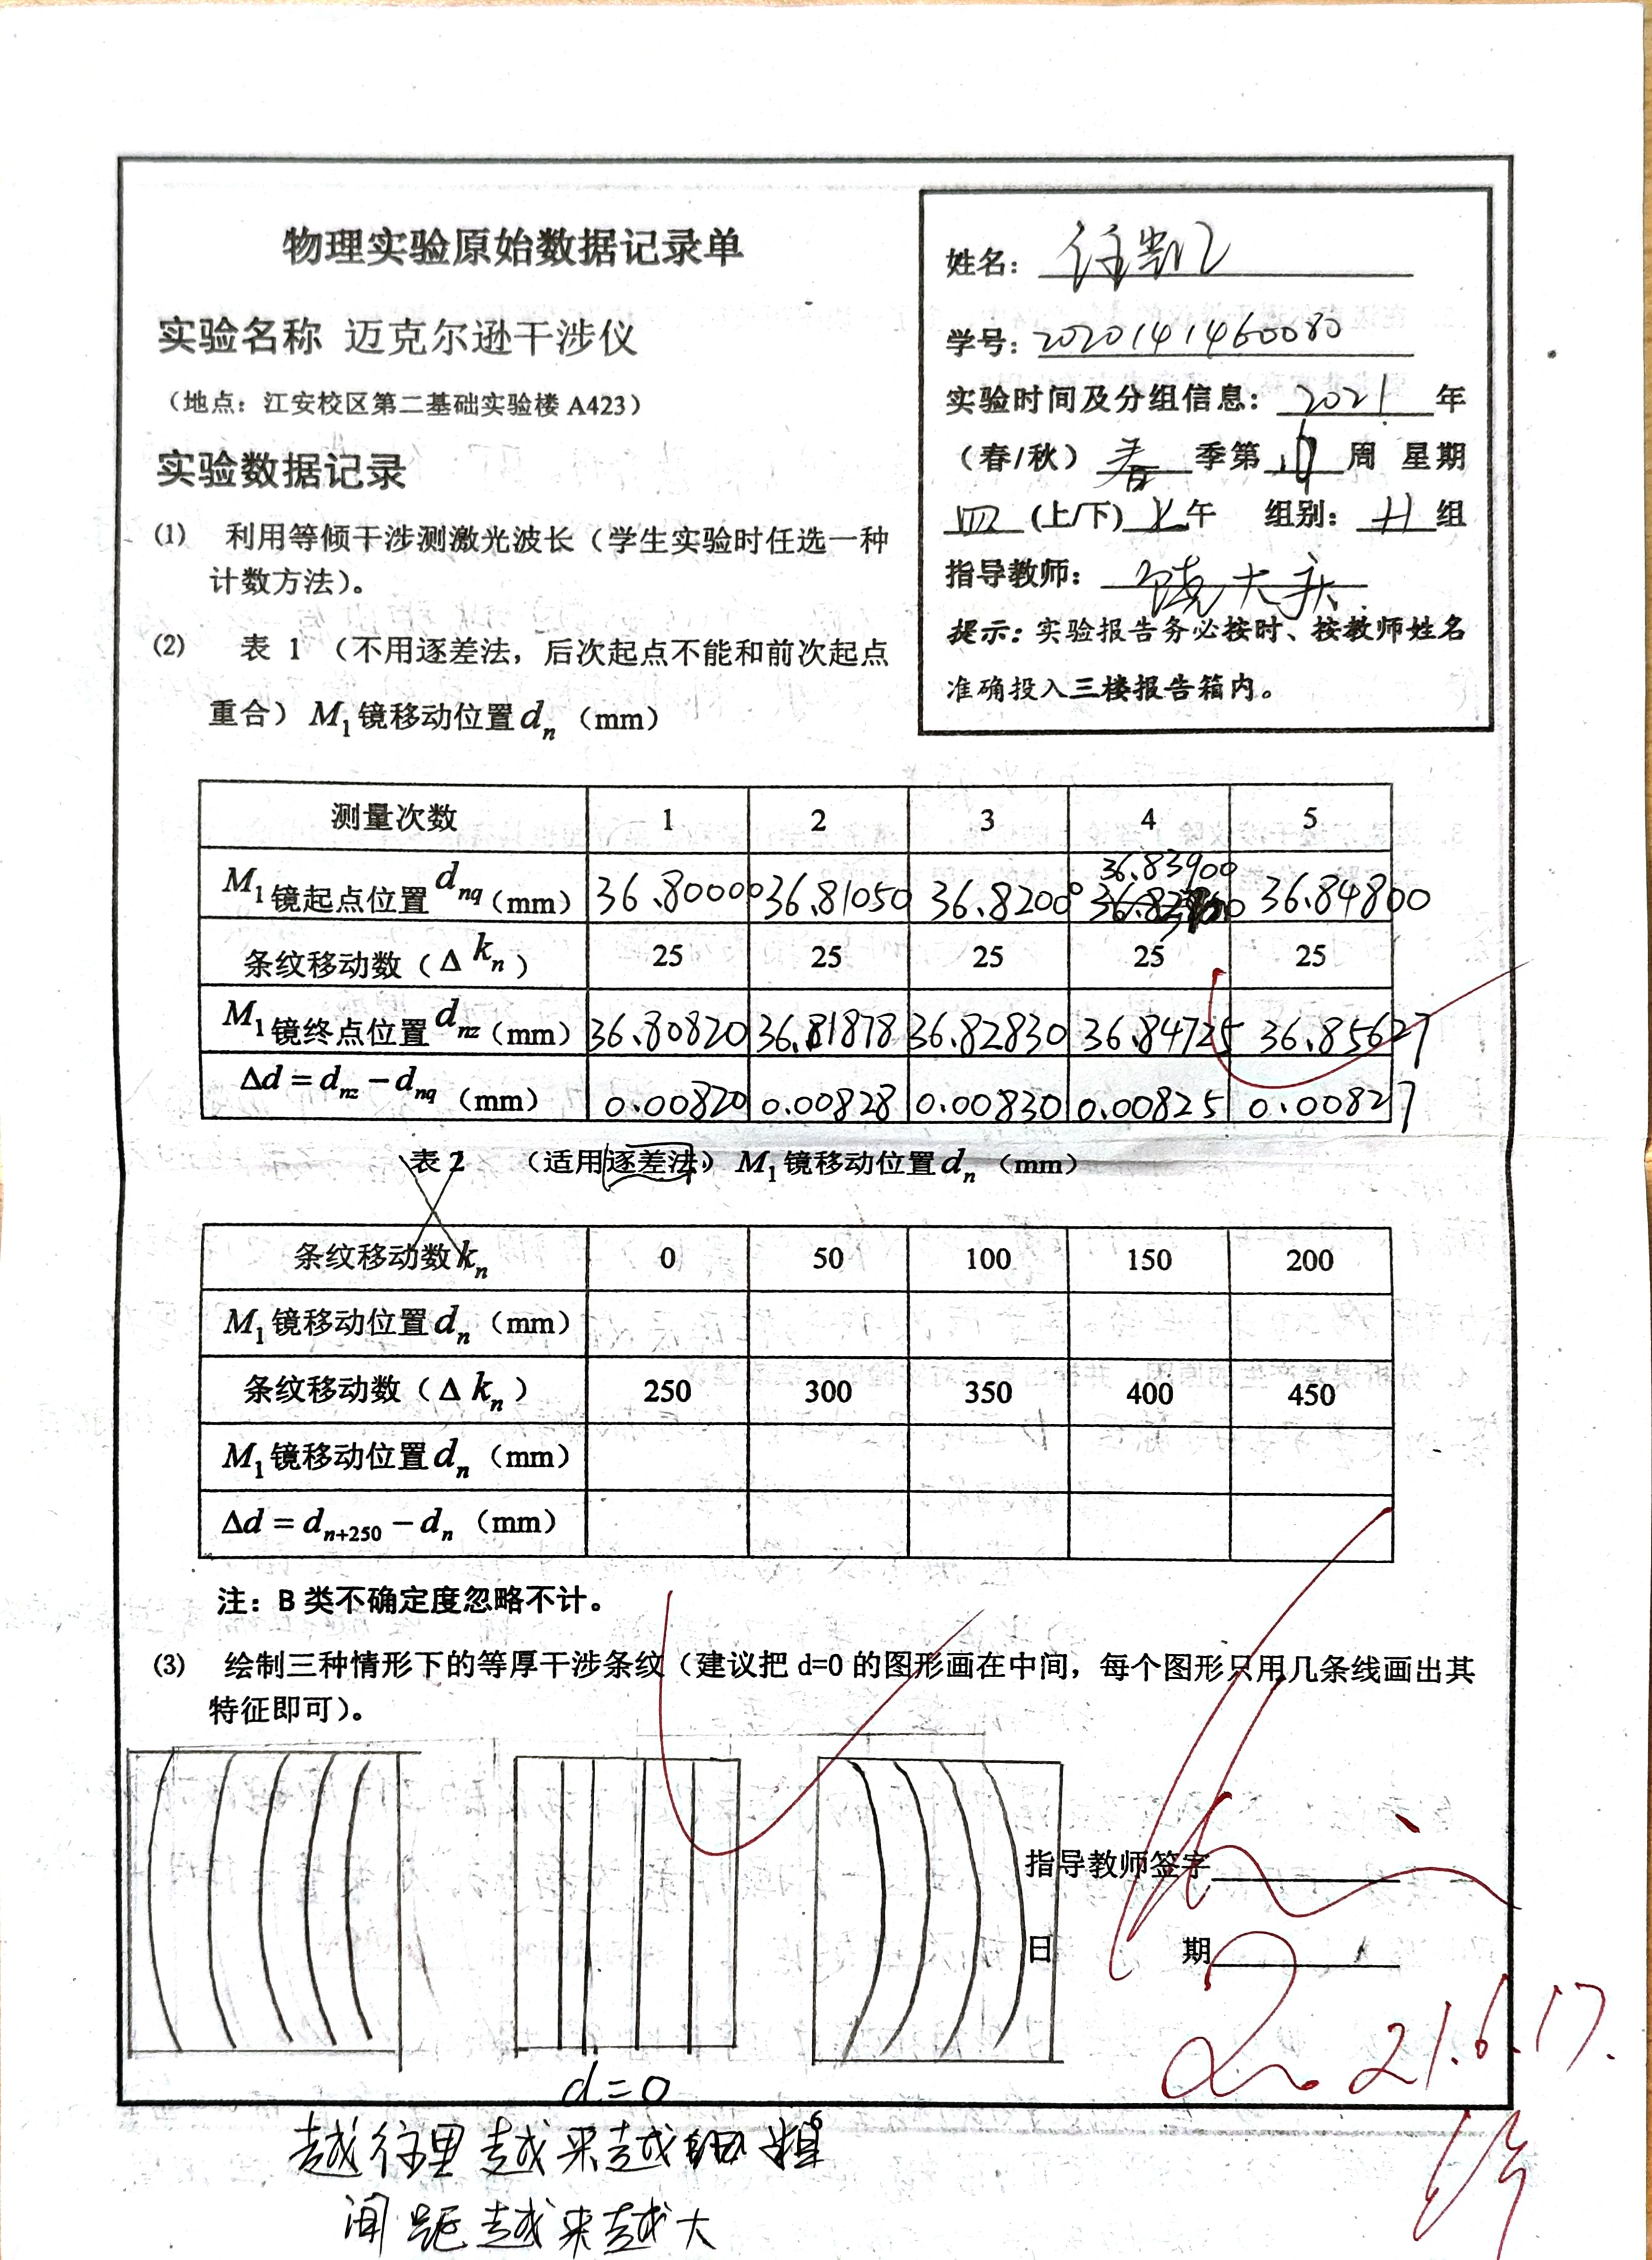 物理实验原始数据记录单
实验名称 迈克尔逊干涉仪
（地点：江安校区第二基础实验楼 A423）
实验数据记录
(1) 利用等倾干涉测激光波长（学生实验时任选一种
计数方法）。
(2) 表 1 （不用逐差法，后次起点不能和前次起点
重合）M₁镜移动位置dₙ（mm）
姓名：任凯
学号：2020141460080
实验时间及分组信息：2021年
（春/秋）春季第周 星期
四(上/下)上午 组别：廿组
指导教师：饶大庆
提示：实验报告务必按时、按教师姓名
准确投入三楼报告箱内。
测量次数 1 2 3 4 5
36.83900
M₁镜起点位置 dnq（mm） 36.80000 36.81050 36.82000 36.84800
条纹移动数（Δ kₙ） 25 25 25 25 25
M₁镜终点位置 dnz（mm） 36.80820 36.81878 36.82830 36.84725 36.85627
Δd = dnz − dnq （mm） 0.00820 0.00828 0.00830 0.00825 0.00827
表 2 （适用逐差法）M₁镜移动位置dₙ（mm）
条纹移动数kₙ 0 50 100 150 200
M₁镜移动位置dₙ（mm）
条纹移动数（Δ kₙ） 250 300 350 400 450
M₁镜移动位置dₙ（mm）
Δd = dₙ₊₂₅₀ − dₙ（mm）
注：B 类不确定度忽略不计。
(3) 绘制三种情形下的等厚干涉条纹（建议把 d=0 的图形画在中间，每个图形只用几条线画出其
特征即可）。
指导教师签字
日 期
21.6.17.
d=0
越往里越来越粗
间距越来越大